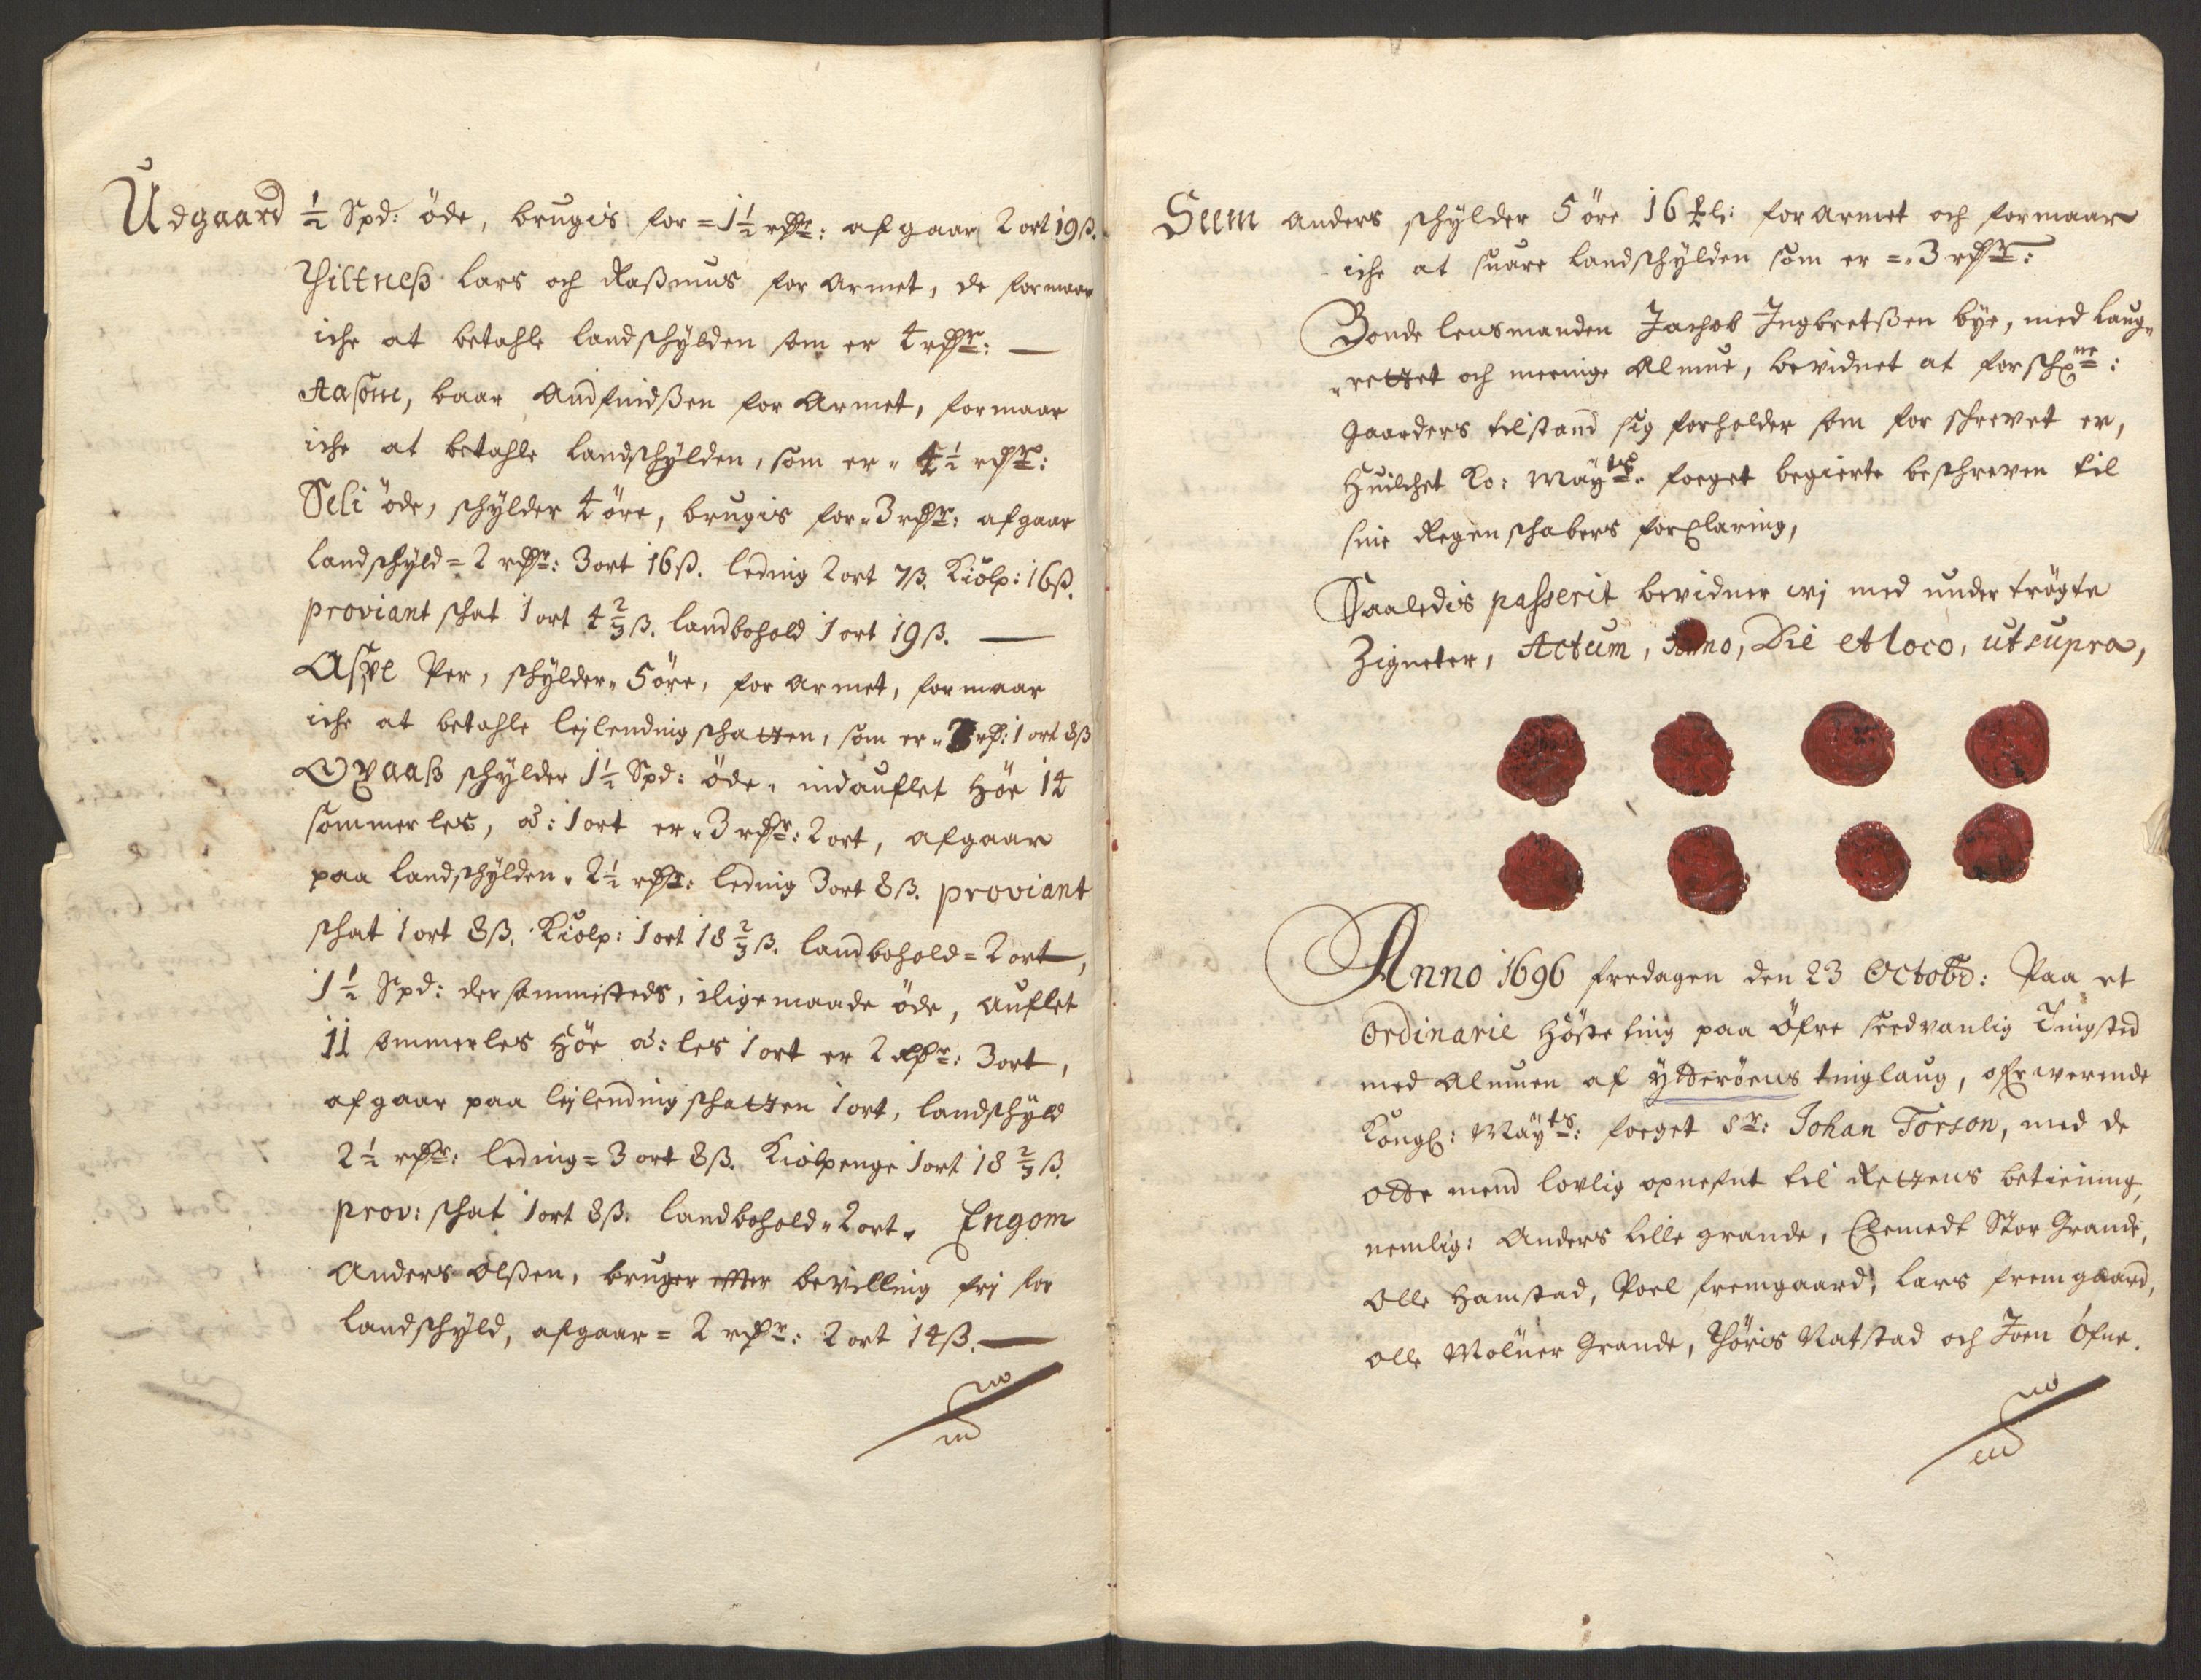 Udgaard ½ Spd: öde, brugis for = 1½ rdr: afgaar 2 ort 19ß.
Tiltneß Lars och Raßmus forarmet, de formaar
iche at betahle landschylden som er 4 rdr: —
Aasom, baar Andfindßen forarmet, formaar
iche at betahle landschylden, som er „ 4½ rdr:
Seli öde, schylder 4 öre, brugis for „ 3 rdr: afgaar
landschyld = 2 rdr: 3 ort 16ß. leding 2 ort 7ß. Kiölp: 16ß.
proviant schat 1 ort 4⅔ß. landbohold 1 ort 19ß. —
Aspe Per, schylder „ 5 öre, forarmet, formaar
iche at betahle lejlending schatten, som er „ rd: 1 ort 8ß
Oxaaß schylder 1½ Spd: öde, indauflet Höe 14
sommerles, á: 1 ort er „ 3 rdr: 2 ort, afgaar
paa landschylden „ 2½ rdr: leding 3 ort 8ß. proviant
schat 1 ort 8ß. Kiölp: 1 ort 18⅔ß. landbohold = 2 ort,
1½ Spd: dersammesteds, iligemaade öde, auflet
11 sommerles Höe á: les 1 ort er 2 rdr: 3 ort,
afgaar paa lejlending schatten 1 ort, landschyld
2½ rdr: leding = 3 ort 8ß. Kiölpenge 1 ort 18⅔ß.
prov: schat 1 ort 8ß. landbohold „ 2 ort „ Engom
Anders Olßen, bruger effter bevilling frj for
landschyld, afgaar = 2 rdr: 2 ort 14ß. —
Seem Anders schylder 5 öre 16 forarmet och formaar
iche at suare landschylden som er = „ 3 rdr:
Bonde lensmanden Jachob Ingbretßen bye, med laug„
„rettet och meenige Almue, bevidnet at forschne:
gaarders tilstand sig forholder som for schrevet er,
Huilchet Ko: Mayts. foeget begierte beschreven til
sine Regenschabers forClaring,
Saaledis passerit bevidner wj med under trögte
Zigneter, Actum, Anno, Die et loco, ut supra,
Anno 1696 fredagen den 23 Octobr: Paa et
ordinarie Hösteting paa Öfre seedvanlig Tingsted
med Almuen af ytteröens tinglaug, ofverwerende
Kongl: Mayts: foeget Sr: Johan Torson, med de
otte mend lovlig opnefnt til Rettens betiening,
nemlig: Anders lille grande, Clemedt Stor Grande,
Olle Hamstad, Poel fremgaard, Lars fremgaard,
Olle Moluer Grande, Thöris Natstad och Joen Öfne.